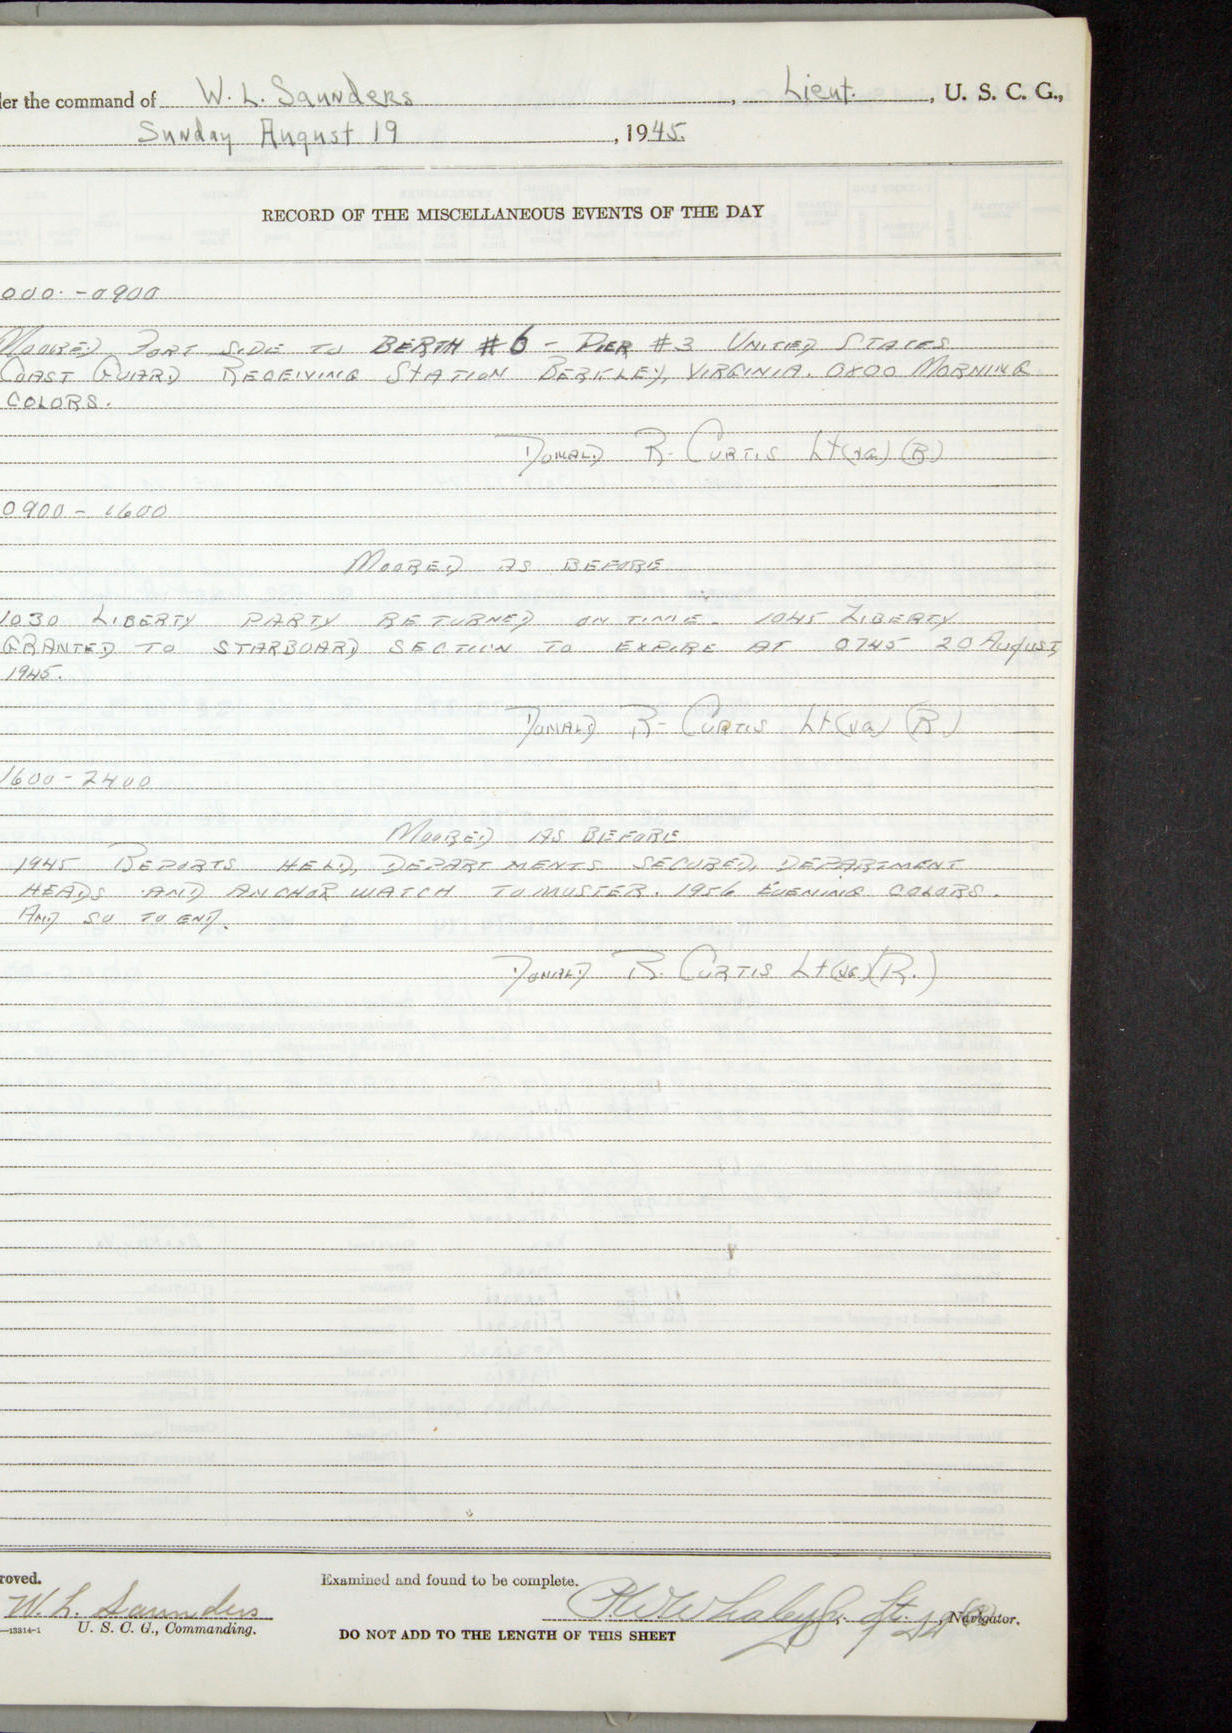 der the command of W. L. Saunders, Lieut., U. S. C. G.,
Sunday August 19, 1945.
RECORD OF THE MISCELLANEOUS EVENTS OF THE DAY
000 - 0900
MOORED PORT SIDE TO BERTH #6 - PIER #3 UNITED STATES
COAST GUARD RECEIVING STATION BERKLEY, VIRGINIA. 0800 MORNING
COLORS.
DONALD R. CURTIS Lt(JG) (R)
0900 - 1600
MOORED AS BEFORE
1030 LIBERTY PARTY RETURNED ON TIME. 1045 LIBERTY
GRANTED TO STARBOARD SECTION TO EXPIRE AT 0745 20 August,
1945.
DONALD R. CURTIS Lt(JG) (R)
1600 - 2400
MOORED AS BEFORE
1945 REPORTS HELD, DEPARTMENTS SECURED, DEPARTMENT
HEADS AND ANCHOR WATCH TO MUSTER. 1956 EVENING COLORS.
AND SO TO END.
DONALD R. CURTIS Lt(JG)(R.)
roved.
Examined and found to be complete.
W. L. Saunders
Whaley Jr. Lt. jg (R), Navigator.
—13314-1 U. S. C. G., Commanding.
DO NOT ADD TO THE LENGTH OF THIS SHEET